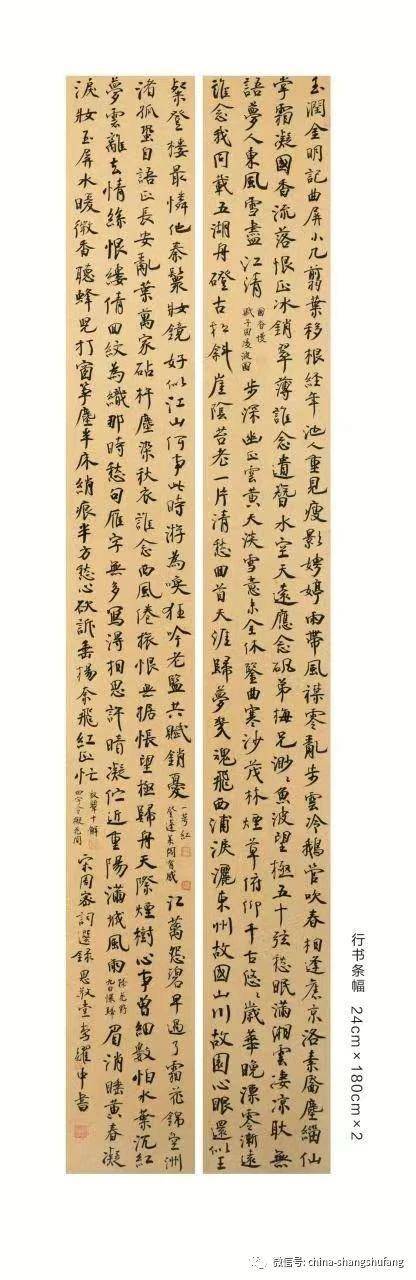 玉潤金明記曲屏小几剪葉移根經年氾人重見瘦影娉婷雨帶風襟零亂步雲冷鵝管吹春相逢舊京洛素靨塵緇仙
掌霜凝國香流落恨正冰銷翠薄誰念遺簪水空天遠應念礬弟梅兄渺渺魚波望極五十弦愁眠滿湘雲淒涼耿無
語夢入東風雪盡江清 國香慢
賦子固凌波圖
步深幽正雲黃天淡雪意未全休鑒曲寒沙茂林煙草俯仰千古悠悠歲華晚漂零漸遠
誰念我同載五湖舟磴古松斜崖陰苔老一片清愁回首天涯歸夢幾魂飛西浦淚灑東州故國山川故園心眼還似王
粲登樓最憐他秦鬟妝鏡好似江山何事此時游為喚狂吟老監共賦銷憂 一萼紅
登蓬萊閣有感
江蘺怨碧早過了霜花錦空洲
渚孤蛩自語正長安亂葉萬家砧杵塵染秋衣誰念西風倦旅恨無據悵望極歸舟天際煙樹心事曾細數怕水葉沉紅
夢雲離去情絲恨縷倩回紋為織那時愁句雁字無多寫得相思許暗凝佇近重陽滿城風雨 掃花游
九日懷歸
眉消睡黃春凝
淚妝玉屏水暖微香聽蜂兒打窗箏塵半床綃痕半方愁心欲訴垂楊奈飛紅正忙 效顰十解
四字令擬花間
宋周密詞選錄思敬堂李耀申書
行书条幅 24cm×180cm×2
微信号: china-shangshufang